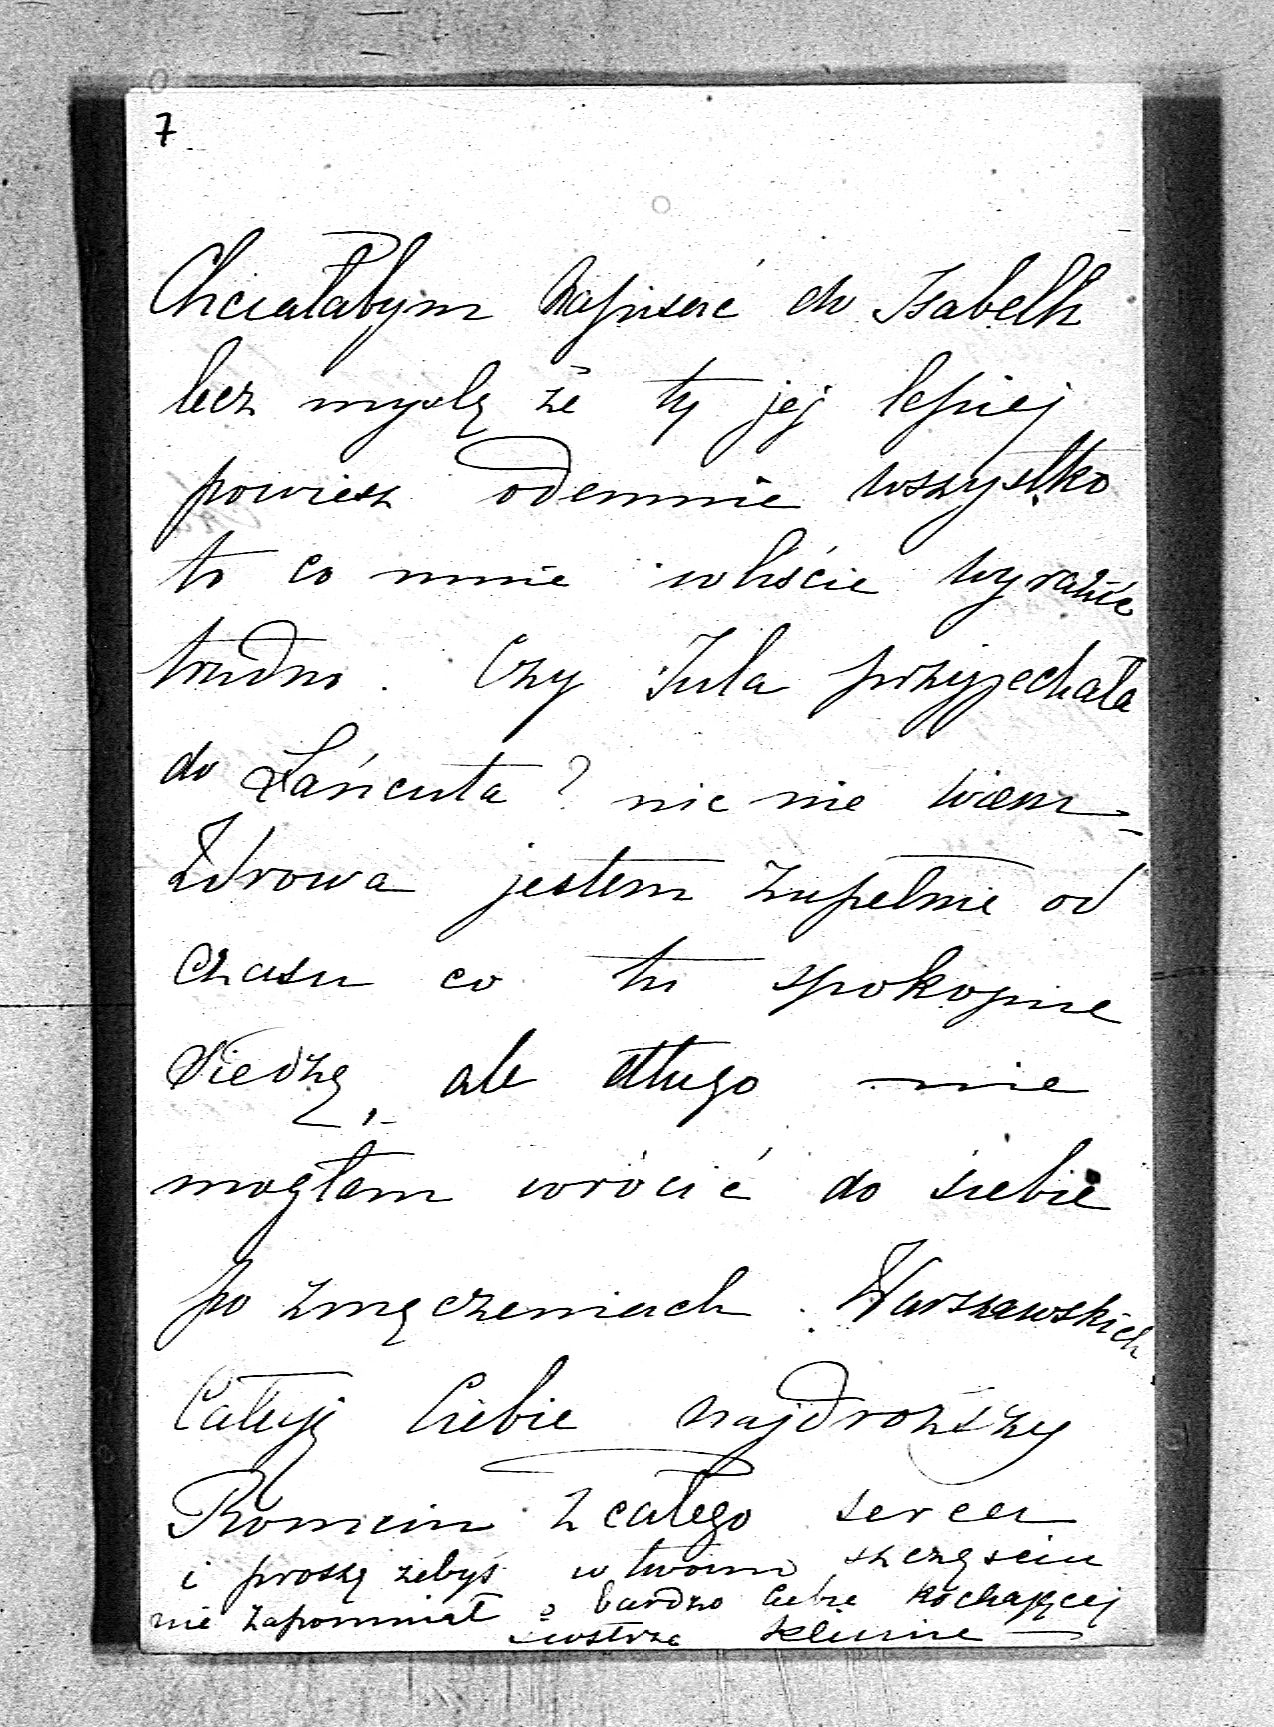 7
Chciałabym napisać do Isabelli
lecz myślę że ty jej lepiej
powiesz odemnie wszystko
to co mnie w liście wyrazić
trudno. Czy Jula przyjechała
do Łańcuta? nic nie wiem –
Zdrowa jestem zupełnie od
czasu co tu spokojnie
siedzę, ale długo nie
mogłam wrócić do siebie
po zmęczeniach Warszawskich
Całuję Ciebie najdroższy
Romciu z całego serca
i proszę żebyś w twoim szczęściu
nie zapomniał o bardzo Ciebie kochającej
siostrze Klimie —